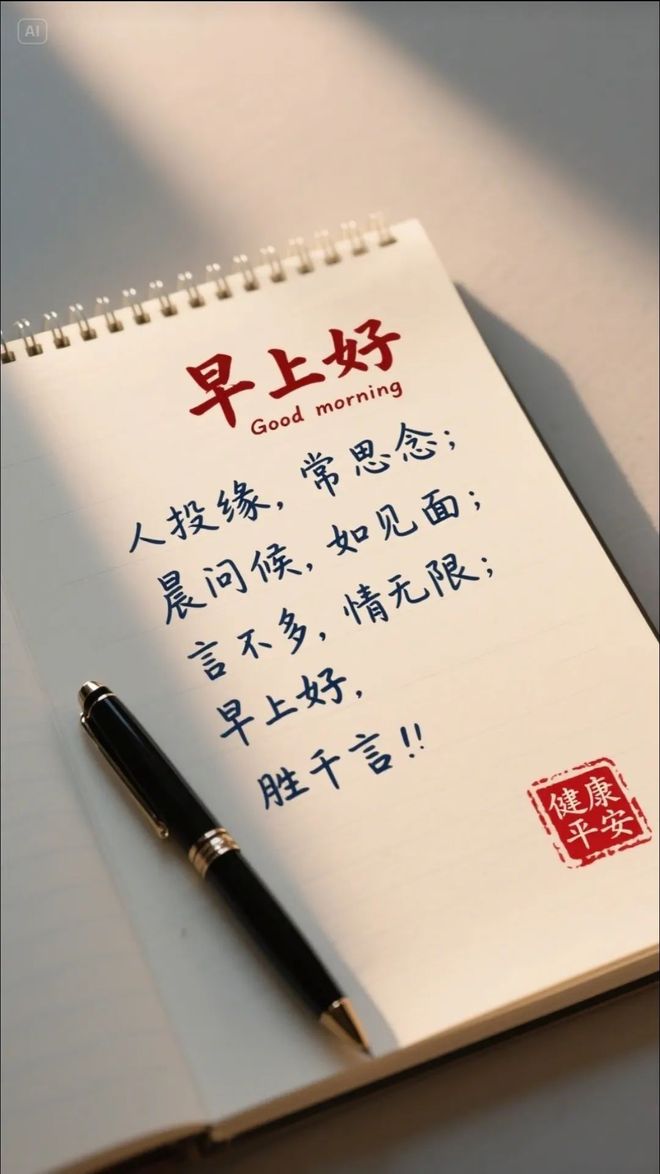 AI
早上好
Good morning
人投缘，常思念；
晨问候，如见面；
言不多，情无限；
早上好，
胜千言!!
健康
平安